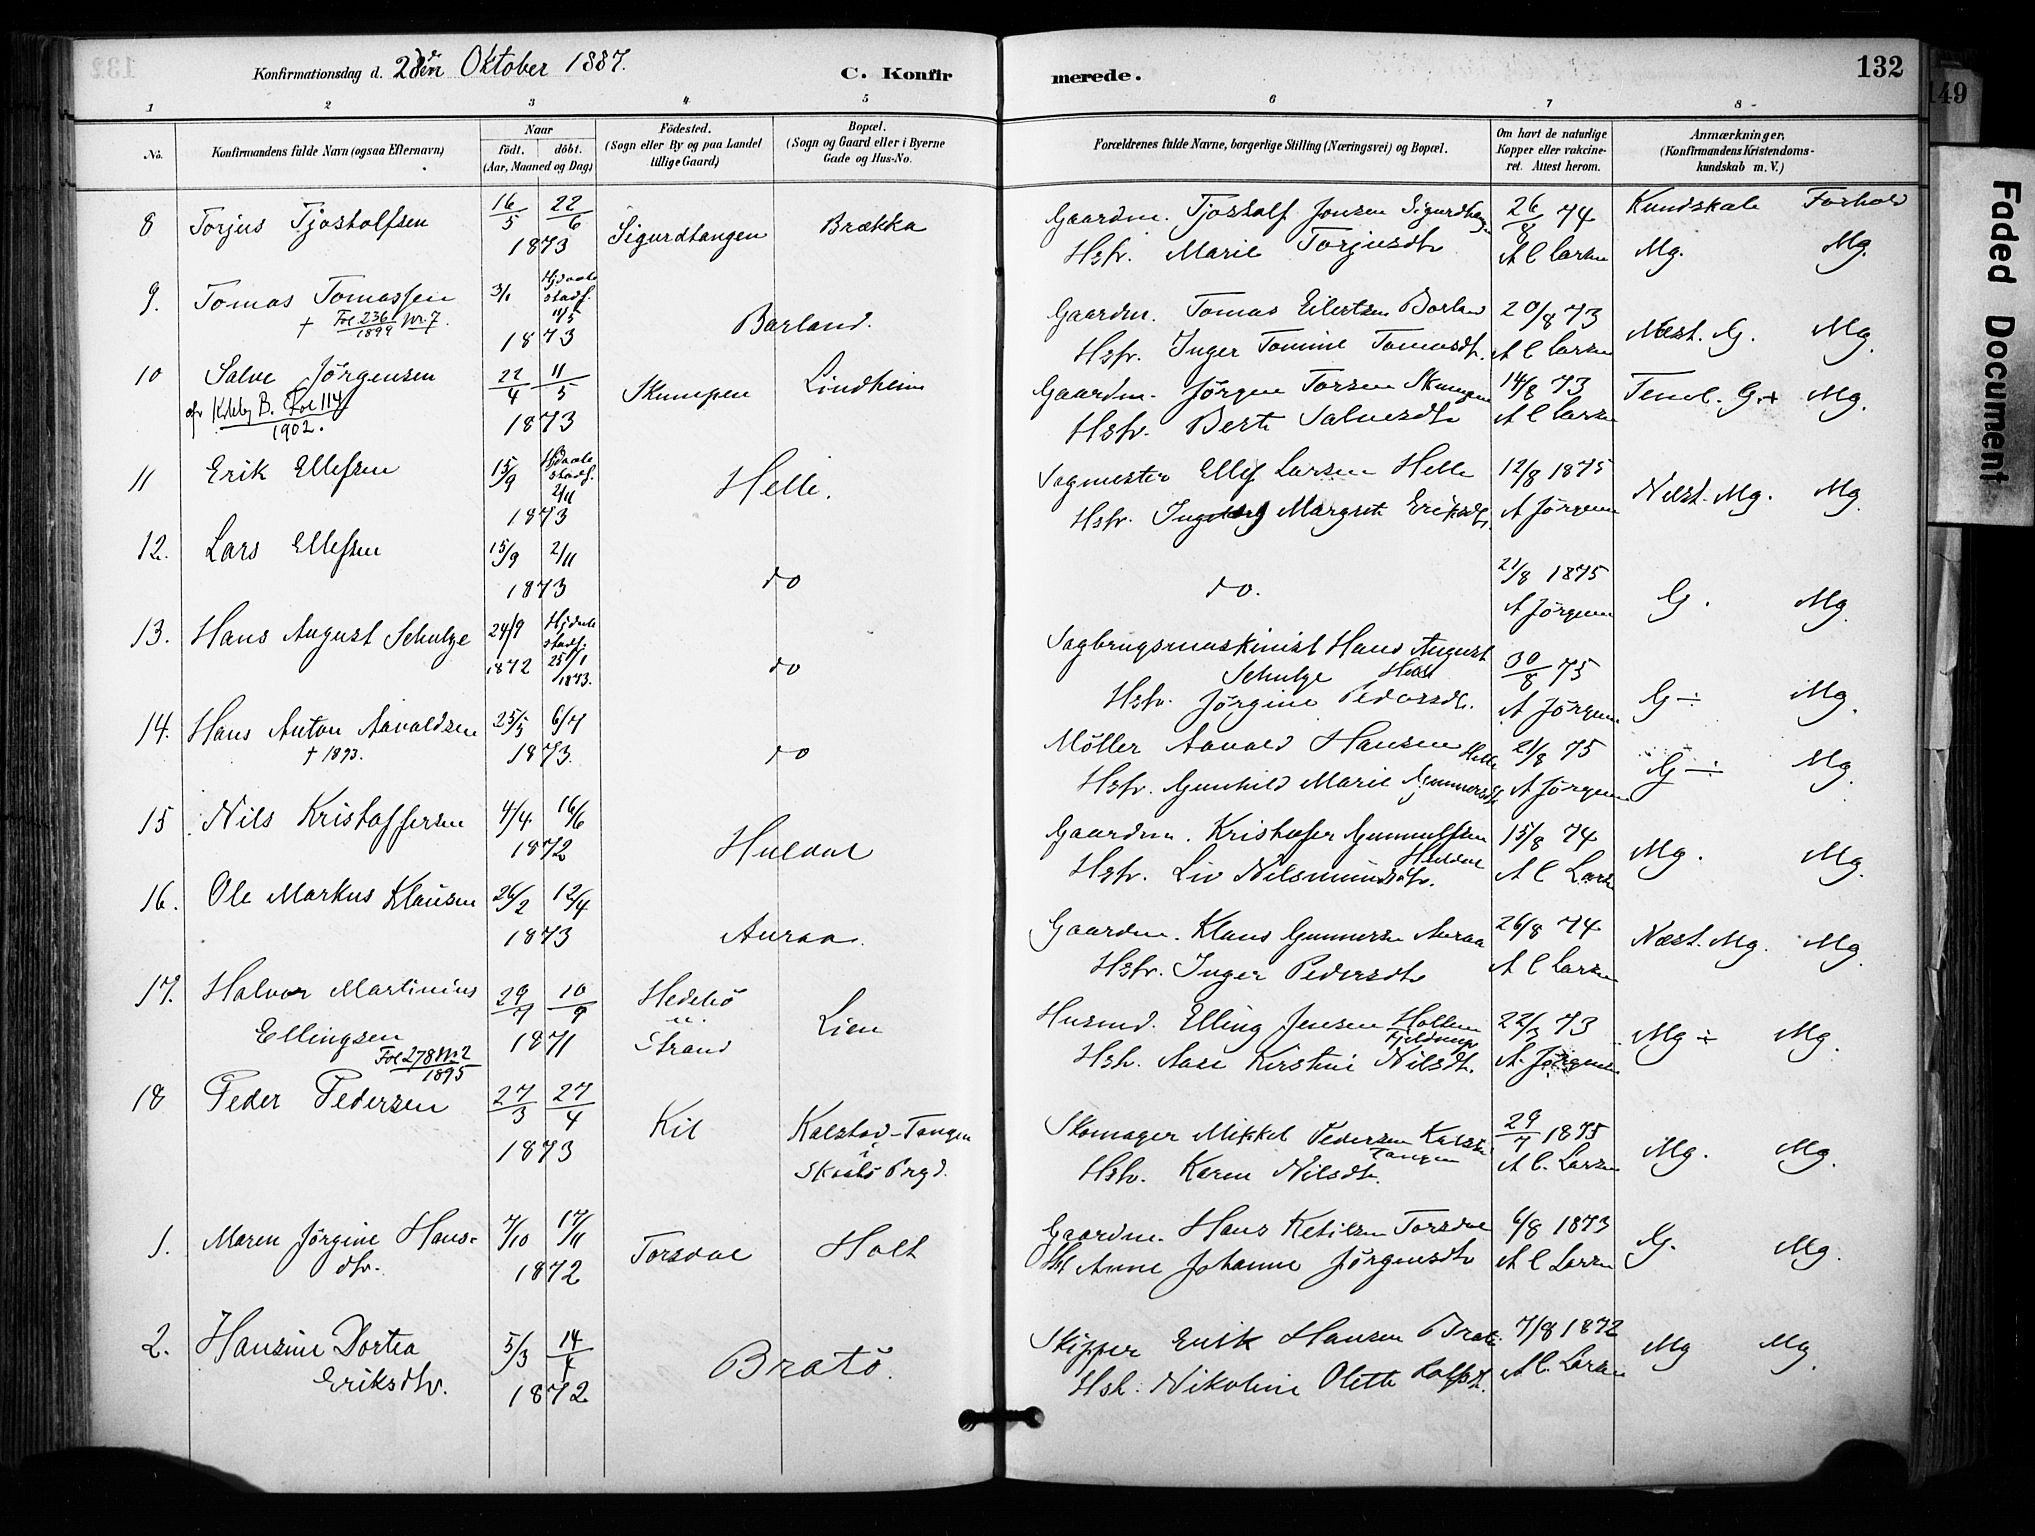 Konfirmationsdag d. 2den Oktober 1887.
C. Konfirmerede.
132
149
Faded Document
1 2 3 4 5 6 7 8
No.
Konfirmandens fulde Navn (ogsaa Efternavn)
Naar
födt. döbt.
(Aar, Maaned og Dag)
Födested.
(Sogn eller By og paa Landet
tillige Gaard)
Bopæl.
(Sogn og Gaard eller i Byerne
Gade og Hus-No.
Forældrenes fulde Navne, borgerlige Stilling (Næringsvei) og Bopæl.
Om havt de naturlige
Kopper eller vakcine-
ret. Attest herom.
Anmærkninger,
(Konfirmandens Kristendoms-
kundskab m. V.)
Kundskab Forhold
8 Torjus Tjostolfsen 16/5 22/6 Sigurdtangen Brækka Gaardm. Tjostolf Jonsen Sigurdtangen 26/8 74
1873 Hstr. Marie Torjusdtr A C Larsen Mg. Mg.
9. Tomas Tomassen 3/1 Hjdøbt stadf. 11/5 Barland. Gaardm. Tomas Eilertsen Borland 20/8 73 Næst. G. Mg.
† Fol 236 Nr. 7. 1899 1873 Hstr. Inger Tomine Tomasdtr. A C Larsen
10 Salve Jørgensen 22/4 11/5 Skumpen Lindheim Gaardm. Jörgen Torsen Skumpen 14/8 73 Teml. G.+ Mg.
afr Kleby B. Fol 114 1902. 1873 Hstr. Berte Salvesdtr A C Larsen
11 Erik Ellefsen 15/9 Hjdøbt stadf. 2/11 Helle. Sagmester Ellef Larsen Helle 12/8 1875 Nest. Mg. Mg.
1873 Hstr. Ingeborg Margrete Eriksdtr. A Jörgensen
12. Lars Ellefsen 15/9 2/11 do do. 21/8 1875 G. Mg.
1873 A Jörgensen
13. Hans August Schulze 24/9 Hjdøbt stadf. do Sagbrugsmaskinist Hans August 30/8 75 G ÷ Mg.
1872 25/1 1873. Schulze Helle
Hstr. Jørgine Pedersdtr. A Jörgensen
14. Hans Anton Aavaldsen 25/5 6/7 do Möller Aavald Hansen Helle 21/8 75 G ÷ Mg.
† 1893. 1873. Hstr. Gunhild Marie Gunnersdtr A Jörgensen
15 Nils Kristoffersen 4/4 16/6 Huldal Gaardm. Kristofer Gunnulfsen 15/8 74 Mg. Mg.
1872 Huldal
Hstr. Liv Nilsmundsdtr. A C Larsen
16. Ole Markus Klausen 26/2 12/4 Auraa. Gaardm. Klaus Gunnersen Auraa 26/8 74 Næst. Mg. Mg.
1873 Hstr. Inger Pedersdtr A C Larsen
17. Halvor Martinius 29/7 10/9 Hedebö Lien Husmd. Elling Jensen 73 Mg ÷ Mg.
Ellingsen 1871 Strand Hstr. Aase Kirstine Nilsdtr. A. Jörgensen
Fol 278 Nr 2 1895
18 Peder Pedersen 27/3 27/4 Kil Kalstad-Tangen Skomager Mikkel Pedersen 29/7 1875 Mg. Mg.
1873 i Skaatö Prgd. Tangen
Hstr. Karen Nilsdtr. A C. Larsen
1. Maren Jørgine Hans- 7/10 17/11 Torsdal Holt Gaardm. Hans Ketilsen Torsdal 6/8 1873 G. Mg.
dtr. 1872 Hst Anne Johanne Jörgensdtr A C Larsen
2. Hansine Dortea 5/3 14/4 Bratö. Skipper Erik Hansen Bratö 7/8 1872 Mg Mg.
Eriksdtr. 1872 Hstr. Nikoline Olette Rolfsdt. A C. Larsen